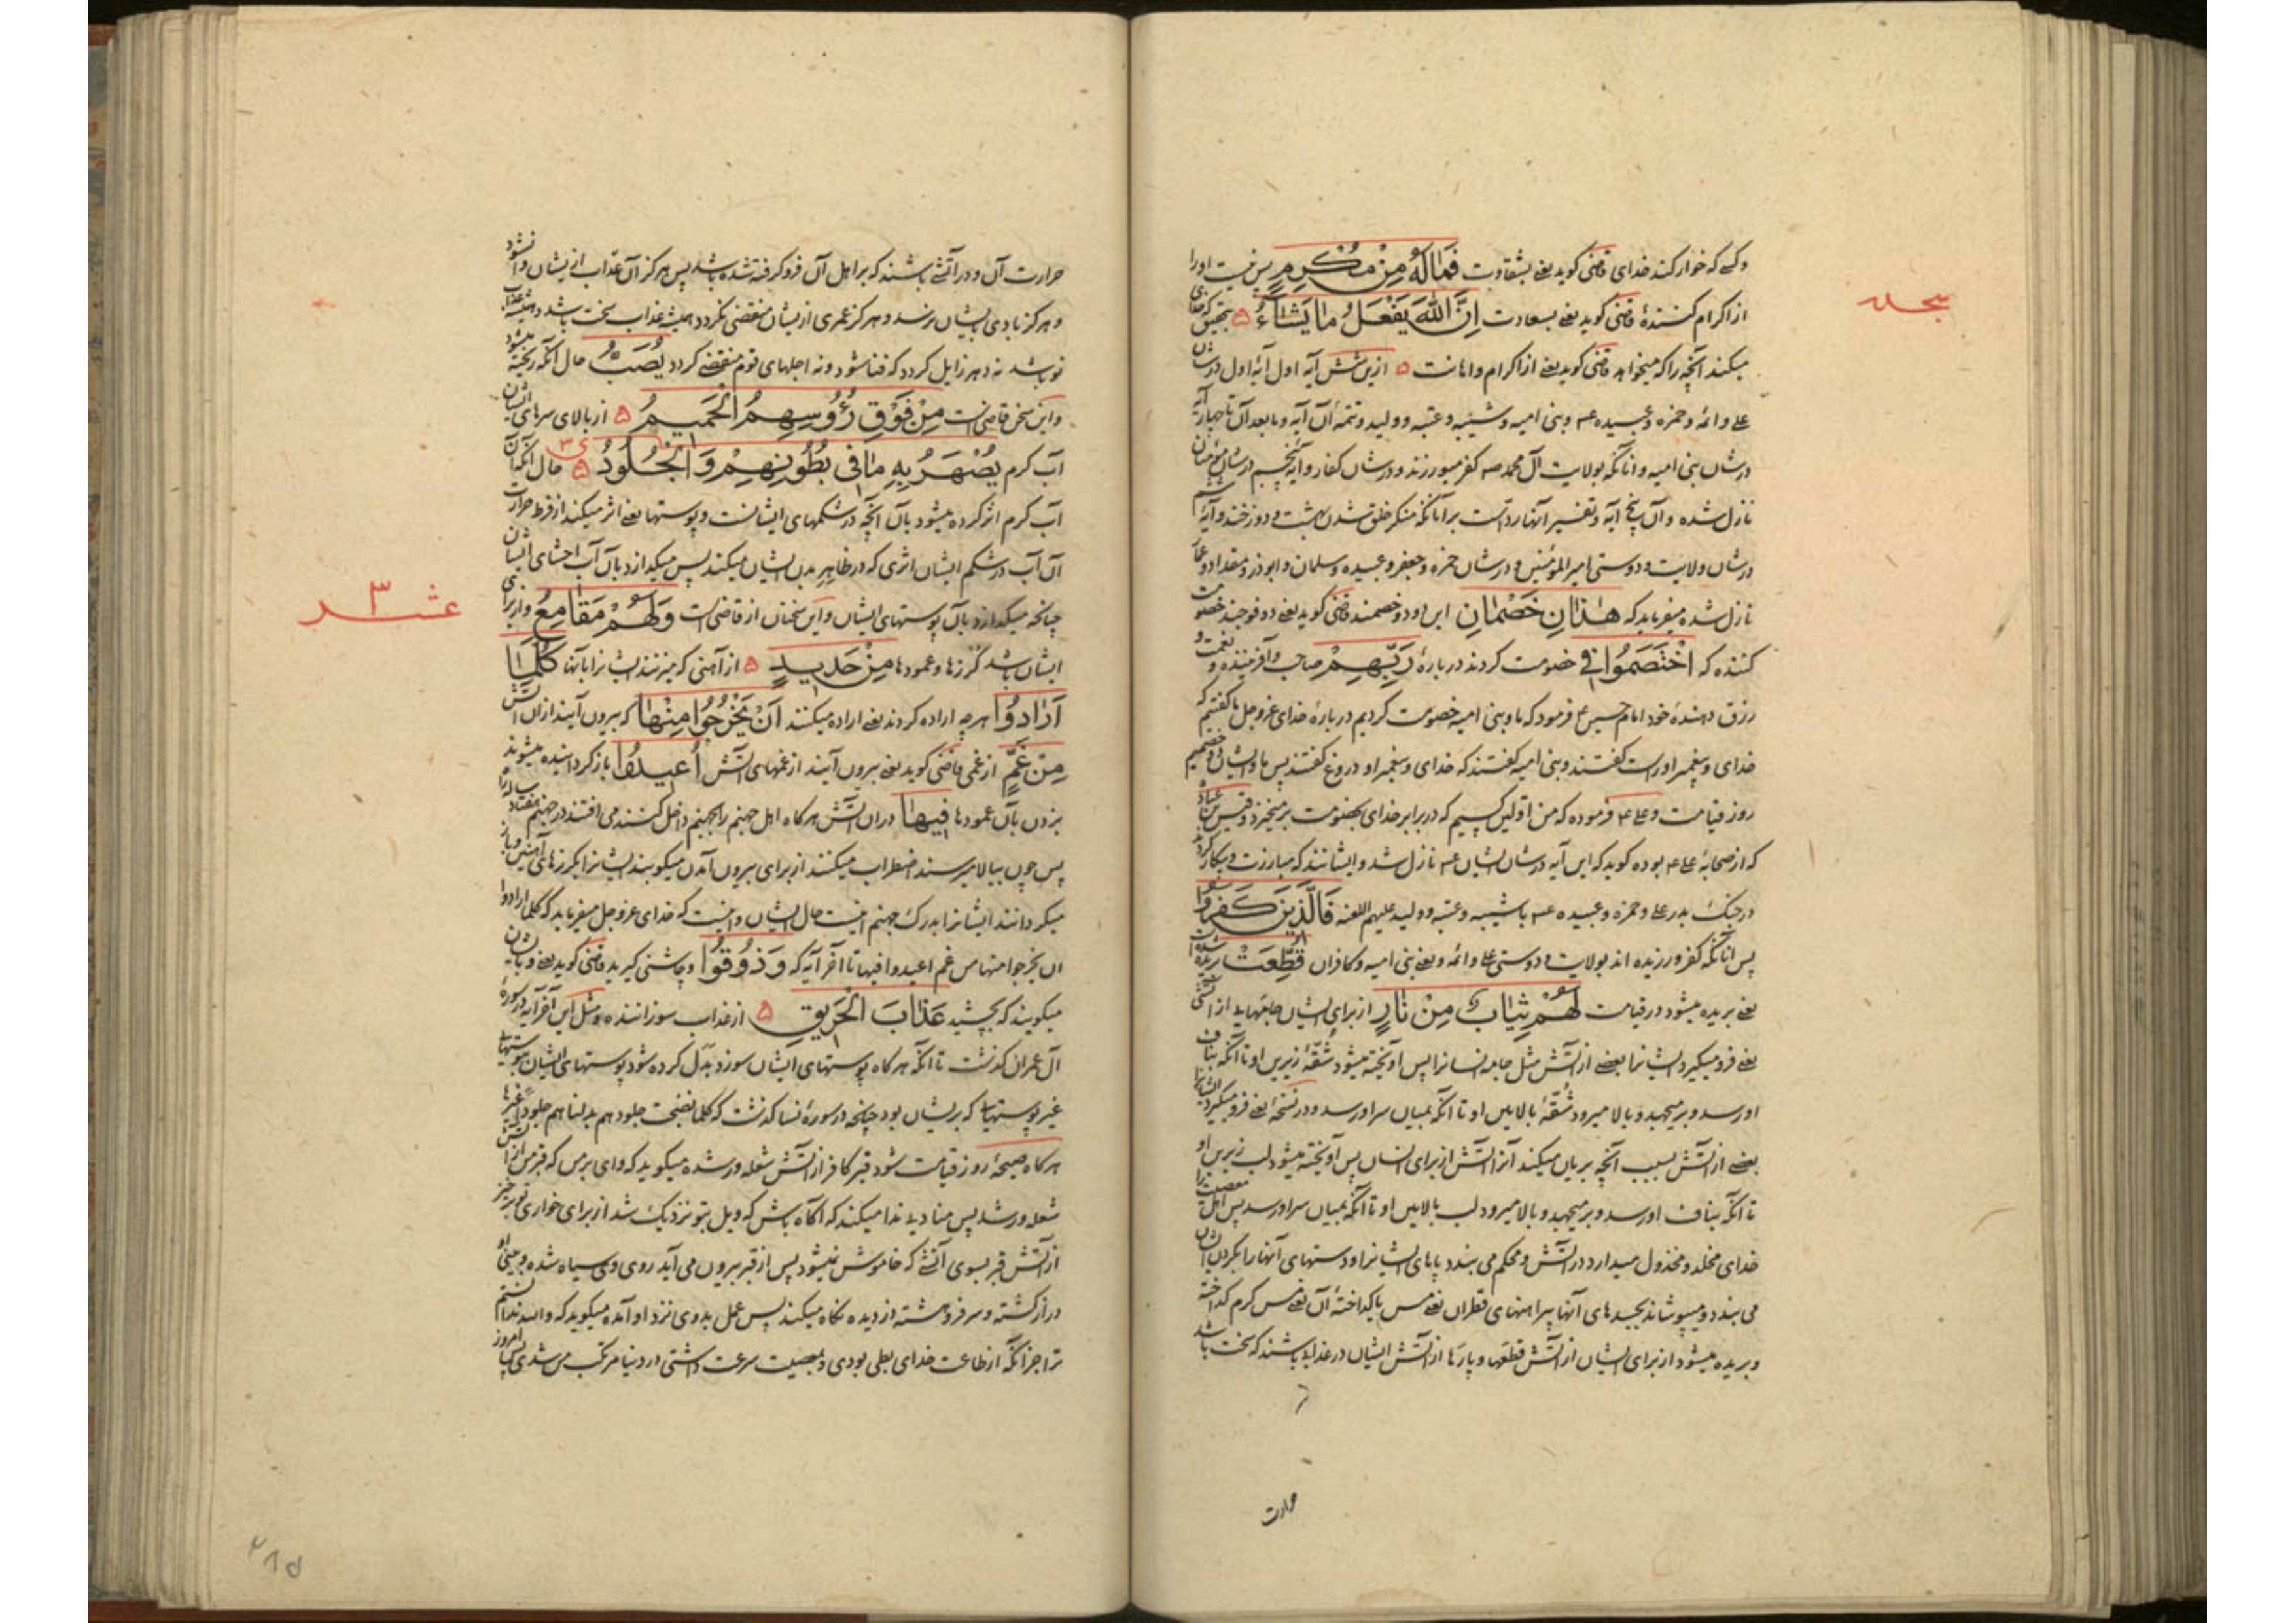 وکسی که خوار کند خدای قاضی کوید یعنی بشقاوت فَمَالَهُ مِنْ مُكْرِمٍ پس نیست اورا
از اکرام کننده قاضی کوید یعنی بسعادت اِنَّ اللّهَ يَفْعَلُ مَا يَشَاءُ ۵ بتحقیق که خدای
سجده
میکند آنچه را که میخواهد قاضی کوید یعنی از اکرام واهانت ۵ ازین شش آیه اول آیۀ اول درشان
علی وائمه وحمزه وعبیده عم وبنی امیه وشیبه وعتبه وولید وتتمه آن آیه ومابعد آن تا چهار آیه
درشان بنی امیه وانانکه بولایت آل محمد صم کفر میورزند ودرشان کفار وآیه پنجم درشان مؤمنان
نازل شده وآن پنج آیه وتفسیر آنها رد است بر آنانکه منکر خلق شدن بهشت ودوزخند وآیۀ ششم
درشان ولایت ودوستی امیر المؤمنین ودرشان حمزه وجعفر وعبیده وسلمان وابوذر ومقداد وعمار
نازل شده میفرماید که هٰذَانِ خَصْمَانِ این دو دو خصمند قاضی کوید یعنی دو فوجند خصومت
کننده که اخْتَصَمُوا فِي خصومت کردند دربارۀ رَبِّهِمْ صاحب وآفریننده و نعمت و
رزق دهندۀ خود امام حسین ع فرمود که ما وبنی امیه خصومت کردیم دربارۀ خدای عزوجل ما کفتیم که
خدای وپیغمبر او راست کفتند وبنی امیه کفتند که خدای وپیغمبر او دروغ کفتند پس ما وایشان دو خصمیم
روز قیامت وعلی ع م فرموده که من اولین کسیم که در برابر خدای بخصومت برمیخیزد وقیس بن عباد
که از صحابۀ علی ع م بوده کوید که این آیه درشان ایشان عم نازل شد وایشانند که مبارزت وپیکار کردند
در جنک بدر علی وحمزه وعبیده عم با شیبه وعتبه وولید علیهم اللعنه فَالَّذِينَ كَفَرُوا
پس آنانکه کفر ورزیده اند بولایت ودوستی علی وائمه ویعنی بنی امیه وکافران قُطِّعَتْ بریده شده است
یعنی بریده میشود در قیامت لَهُمْ ثِيَابٌ مِنْ نَارٍ از برای ایشان جامهایی از آتش
یعنی فرو میکیرد ایشانرا بعضی از آتش مثل جامه انسانرا پس آویخته میشود شقۀ زیرین او تا آنکه بناف
او رسد وبرمیجهد وبالا میرود شقۀ بالایین او تا آنکه بمیان سر او رسد ودر نسخۀ یعنی فرو میکیرد ایشانرا
بعضی از آتش بسبب آنچه بریان میکند آنرا آتش از برای انسان پس آویخته میشود لب زیرین او
تا آنکه بناف او رسد وبرمیجهد وبالا میرود لب بالایین او تا آنکه بمیان سر او رسد پس اهل معصیت را
خدای مخلد ومخذول میدارد در آتش ومحکم می بندد پاهای ایشانرا ودستهای آنها را بکردن ایشان
می بندد ومیپوشاند بجسدهای آنها پیراهنهای قطران یعنی مس یا کداختۀ آن یعنی مس کرم کداخته
وبریده میشود از برای ایشان از آتش قطعها وپارها از آتش ایشان در عذابی باشند که سخت باشد
حرارت
حرارت آن ودر آتشی باشند که بر اهل آن فرو کرفته شده باشد پس هرکز آن عذاب از ایشان وا نشود
وهرکز بادی بایشان نرسد وهرکز عمری از ایشان منقضی نکردد همیشه عذاب سخت باشد وهمیشه عذاب
نو باشد نه دهر زایل کردد که فنا شود ونه اجلهای قوم منقضی کردد يُصَبُّ حال آنکه ریخته میشود
واین سخن قاضی است مِنْ فَوْقِ رُؤُوسِهِمُ الْحَمِيمُ ۵ از بالای سرهای ایشان
آب کرم يُصْهَرُ بِهِ مَا فِي بُطُونِهِمْ وَالْجُلُودُ ۵ حال آنکه آن
آب کرم اثر کرده میشود بآن آنچه در شکمهای ایشانست وپوستها یعنی اثر میکند از فرط حرارت
آن آب در شکم ایشان اثری که در ظاهر بدن ایشان میکند پس میکدازد بآن آب احشای ایشان
چنانکه میکدازد بآن پوستهای ایشان واین سخنان از قاضی است وَلَهُمْ مَقَامِعُ واز برای
عشر ۳
ایشان باشد کرزها وعمودها مِنْ حَدِيدٍ ۵ از آهنی که میزنند ایشانرا بآنها كُلَّمَا
اَرَادُوا هرچه اراده کردند یعنی اراده میکنند اَنْ يَخْرُجُوا مِنْهَا که بیرون آیند از آن آتش
مِنْ غَمٍّ از غمی قاضی کوید یعنی بیرون آیند از غمهای آتش اُعِيدُوا باز کردانیده میشوند
بزدن بآن عمودها فِيهَا در آن آتش هرکاه اهل جهنم را بجهنم داخل کنند می افتند در جهنم هفتاد ساله راه
پس چون ببالا میرسند اضطراب میکنند از برای بیرون آمدن میکوبند ایشانرا بکرزهای آهنین وباز
میکردانند ایشانرا بدرک جهنم اینست حال ایشان واینست که خدای عزوجل میفرماید که کلما ارادوا
ان یخرجوا منها من غم اعیدوا فیها تا آخر آیه که وَذُوقُوا وچاشنی کیرید قاضی کوید یعنی وبایشان
میکویند که بچشید عَذَابَ الْحَرِيقِ ۵ از عذاب سوزاننده ومثل این آخر آیه در سورۀ
آل عمران کذشت تا آنکه هرکاه پوستهای ایشان سوزد بدل کرده شود پوستهای ایشان بپوستهای
غیر پوستهایی که برایشان بود چنانچه در سورۀ نسا کذشت که کلما نضجت جلودهم بدلناهم جلودا غیرها
هرکاه صیحۀ روز قیامت شود قبر کافر از آتش شعله ور شده میکوید که وای بر من که قبر من از آتش
شعله ور شد پس منادیی ندا میکند که آکاه باش که ویل بتو نزدیک شد از برای خواری تو برخیز
از آتش قبر بسوی آتشی که خاموش نمیشود پس از قبر بیرون می آید روی وی سیاه شده وبینی او
دراز کشته وسر فروهشته از دیده نکاه میکند پس عمل بد وی نزد او آمده میکوید که والله ندانستم
ترا جز آنکه از طاعت خدای بطی بودی وبمعصیت سرعت داشتی در دنیا مرتکب من شدی پس امروز
۲۱۵